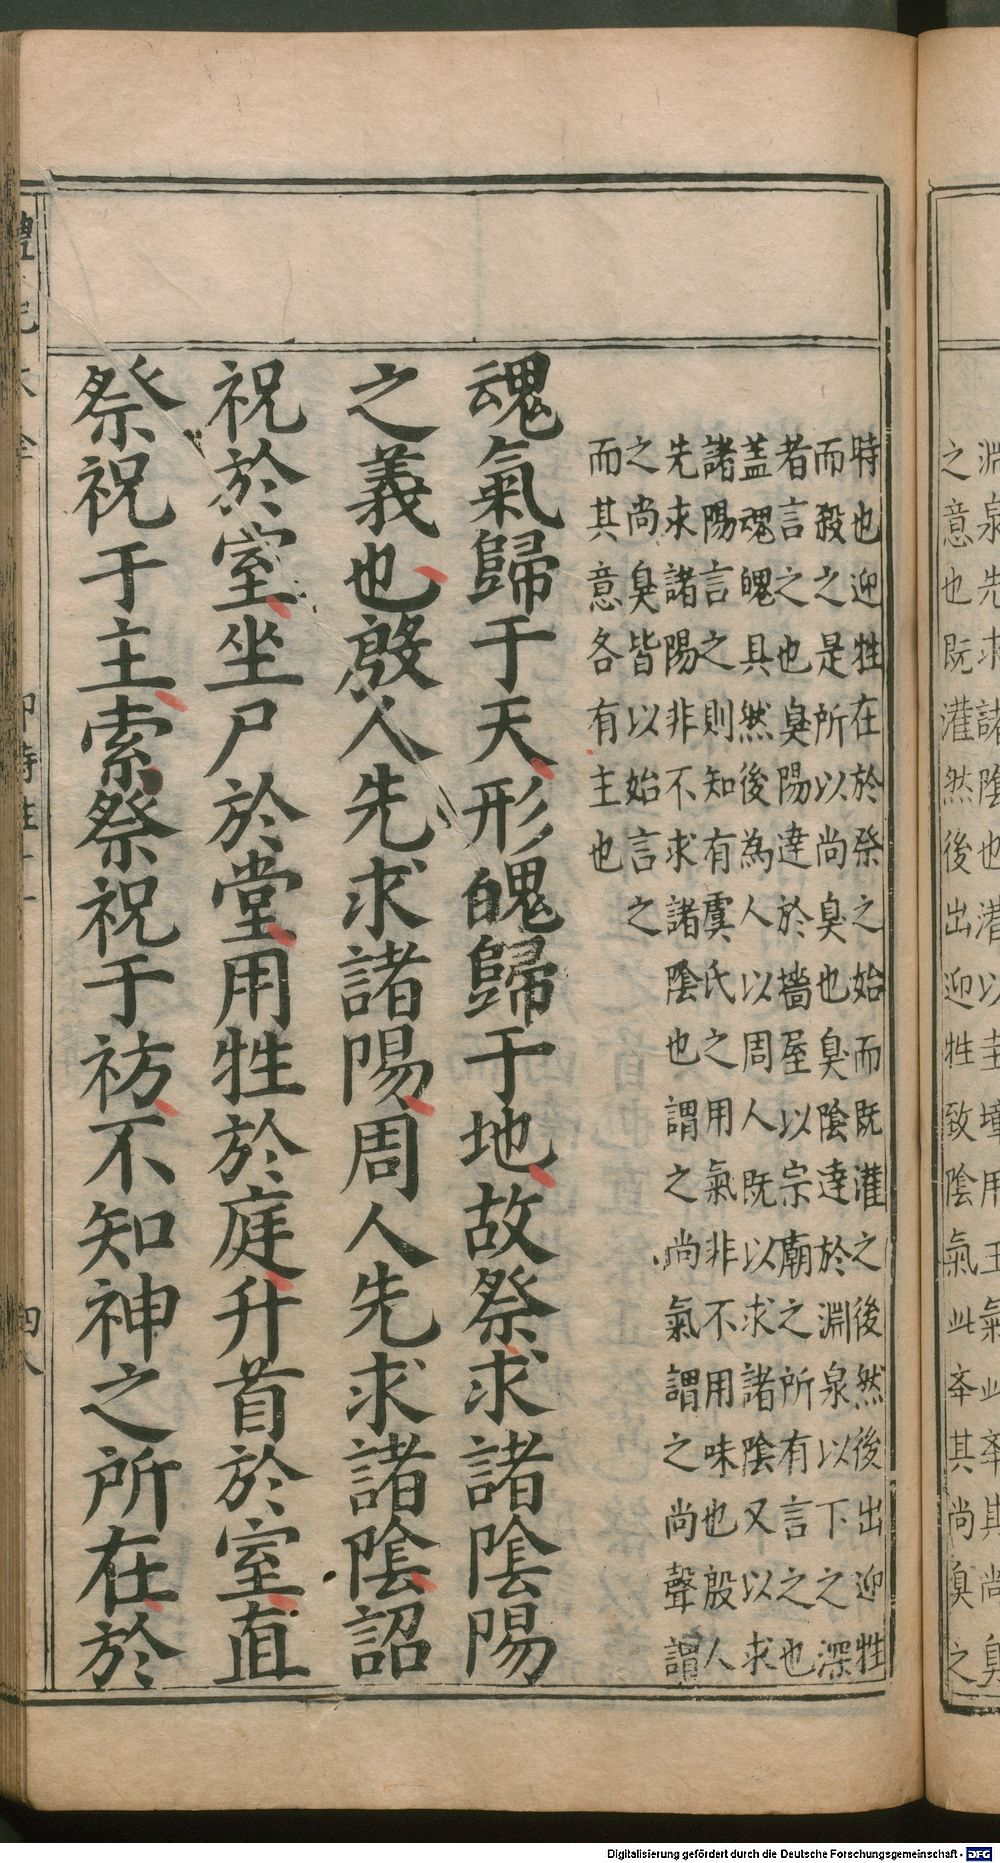 時也迎牲在於祭之始而既灌之後然後出迎牲
而殺之是所以尚臭也臭陰達於淵泉以下之深
者言之也臭陽達於墻屋以宗廟之所有言之也
蓋魂魄具然後為人以周人既以求諸陰又以求
諸陽言之則知有虞氏之用氣非不用味也殷人
先求諸陽非不求諸陰也謂之尚氣謂之尚聲謂
之尚臭皆以始言之
而其意各有主也
魂氣歸于天形魄歸于地故祭求諸陰陽
之義也殷人先求諸陽周人先求諸陰詔
祝於室坐尸於堂用牲於庭升首於室直
祭祝于主索祭祝于祊不知神之所在於
淵泉先求諸陰也灌以圭璋用玉氣此卒其尚臭
之意也既灌然後出迎牲致陰氣此卒其尚臭之
Digitalisierung gefördert durch die Deutsche Forschungsgemeinschaft - DFG